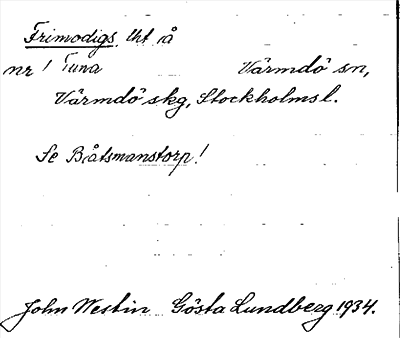 Frimodigs, lht å
nr 1 Tuna Värmdö sn,
Värmdö skg, Stockholmsl.
Se Båtsmanstorp!
John Westin Gösta Lundberg 1934.